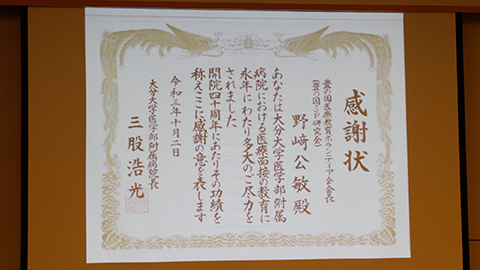 感謝状
豊の国医療教育ボランティア会会長
(豊の国SP研究会)
野﨑公敏殿
あなたは大分大学医学部附属
病院における医療面接の教育に
永年にわたり多大のご尽力を
されました
開院四十周年にあたりその功績を
称えここに感謝の意を表します
令和三年十月二日
大分大学医学部附属病院長
三股浩光